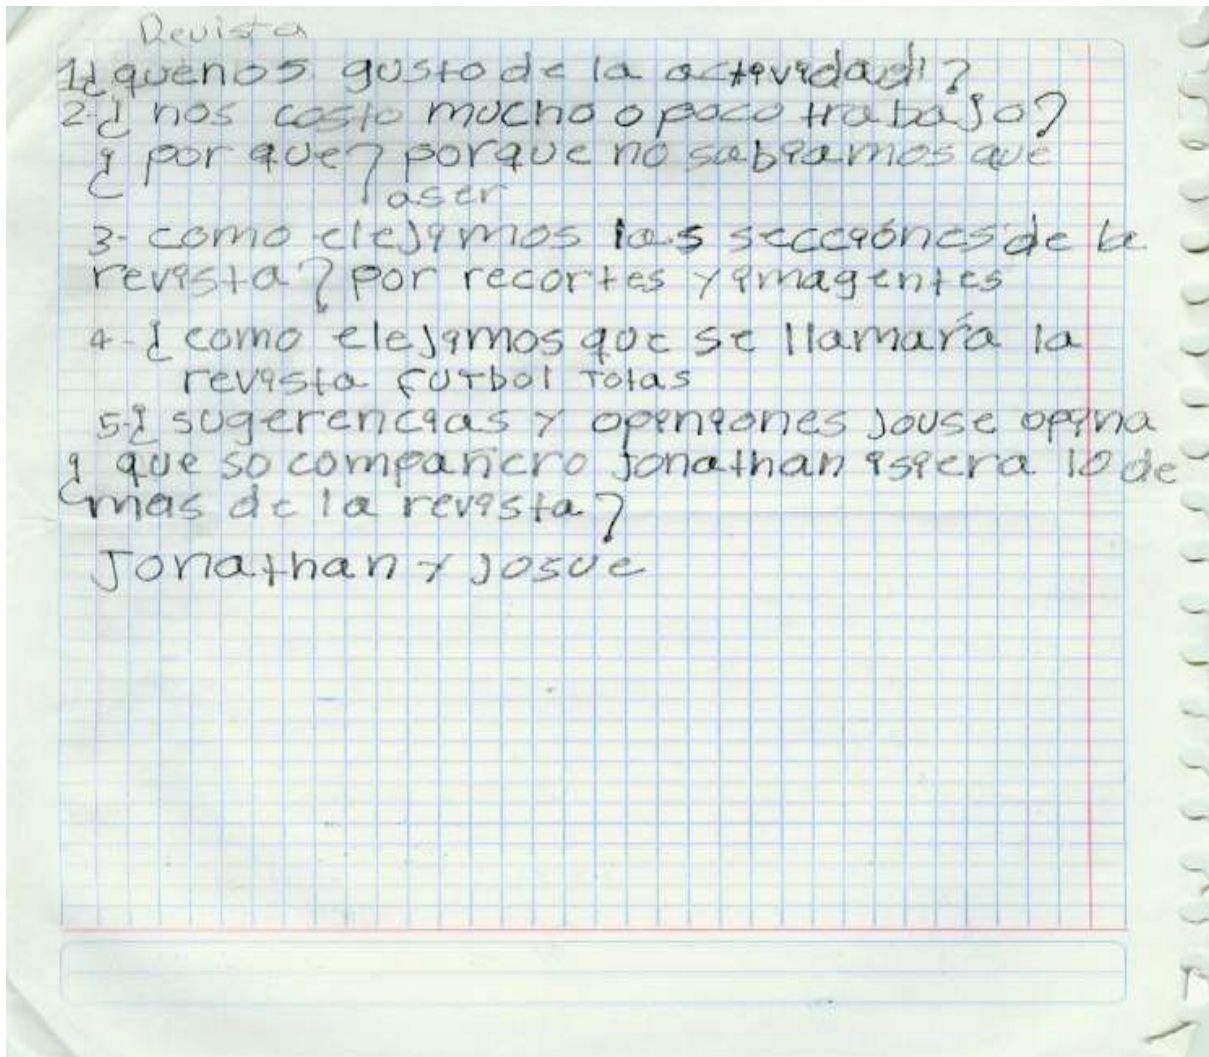 Revista
1¿quenos gusto de la actividad?
2-¿ nos costo mucho o poco trabajo?
¿ por que? porque no sabiamos que
aser
3- como elejimos las secciónes de la
revista? por recortes y imagentes
4-¿ como elejimos que se llamaría la
revista FUTbol Totas
5-¿ sugerencias y opiniones Jouse opina
¿ que so compañero Jonathan isiera lo de
mas de la revista?
Jonathan y Josue